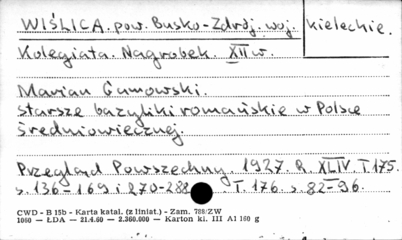 WIŚLICA. pow. Busko-Zdrój. woj. kieleckie.
Kolegiata. Nagrobek. XII w.
Marian Gumowski.
Starsze bazyliki romańskie w Polsce
średniowiecznej.
Przegląd Powszechny. 1927. R. XLIV. T. 175.
s. 136-169 i 270-288 T. 176. s. 82-96.
CWD - B 15b - Karta katal. (z liniat.) - Zam. 788/ZW
1060 — ŁDA — 21.4.60 — 2.360.000 — Karton kl. III A1 160 g